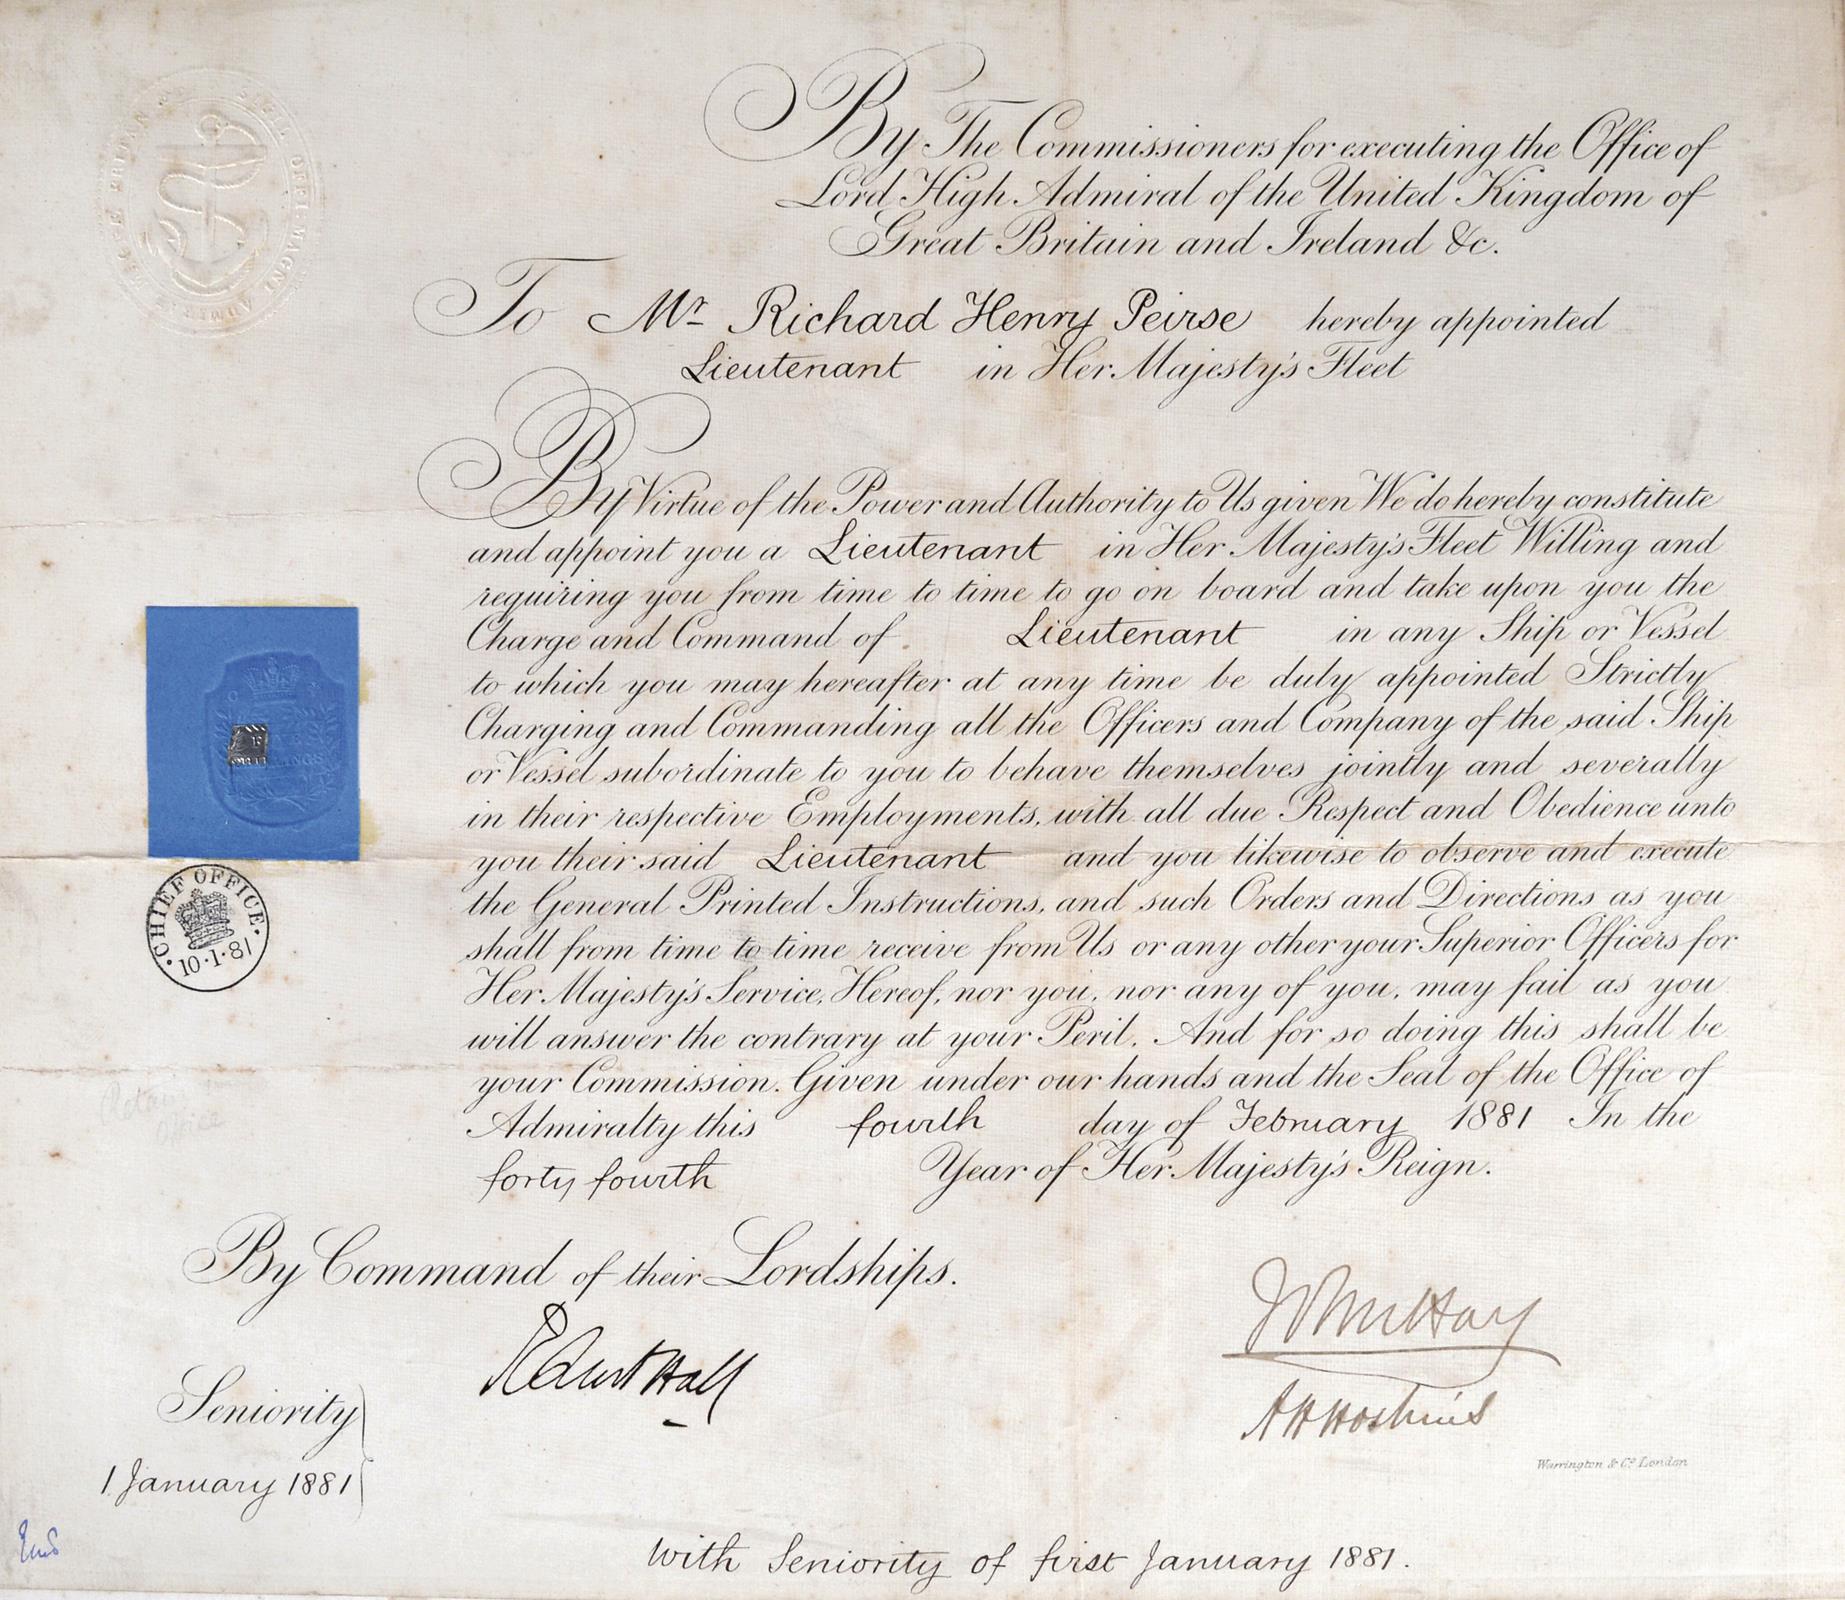 By The Commissioners for executing the Office of
Lord High Admiral of the United Kingdom of
Great Britain and Ireland &c.
To Mr Richard Henry Peirse hereby appointed
Lieutenant in Her Majesty's Fleet
By Virtue of the Power and Authority to Us given We do hereby constitute
and appoint you a Lieutenant in Her Majesty's Fleet Willing and
requiring you from time to time to go on board and take upon you the
Charge and Command of Lieutenant in any Ship or Vessel
to which you may hereafter at any time be duly appointed Strictly
Charging and Commanding all the Officers and Company of the said Ship
or Vessel subordinate to you to behave themselves jointly and severally
in their respective Employments, with all due Respect and Obedience unto
you their said Lieutenant and you likewise to observe and execute
the General Printed Instructions, and such Orders and Directions as you
shall from time to time receive from Us or any other your Superior Officers for
Her Majesty's Service, Hereof, nor you, nor any of you, may fail as you
will answer the contrary at your Peril. And for so doing this shall be
your Commission. Given under our hands and the Seal of the Office of
Admiralty this fourth day of February 1881 In the
forty fourth Year of Her Majesty's Reign.
CHIEF OFFICE
10·1·81
By Command of their Lordships.
Robert Hall
John Hay
A H Hoskins
Seniority
1 January 1881
Warrington & Co. London
with Seniority of first January 1881.